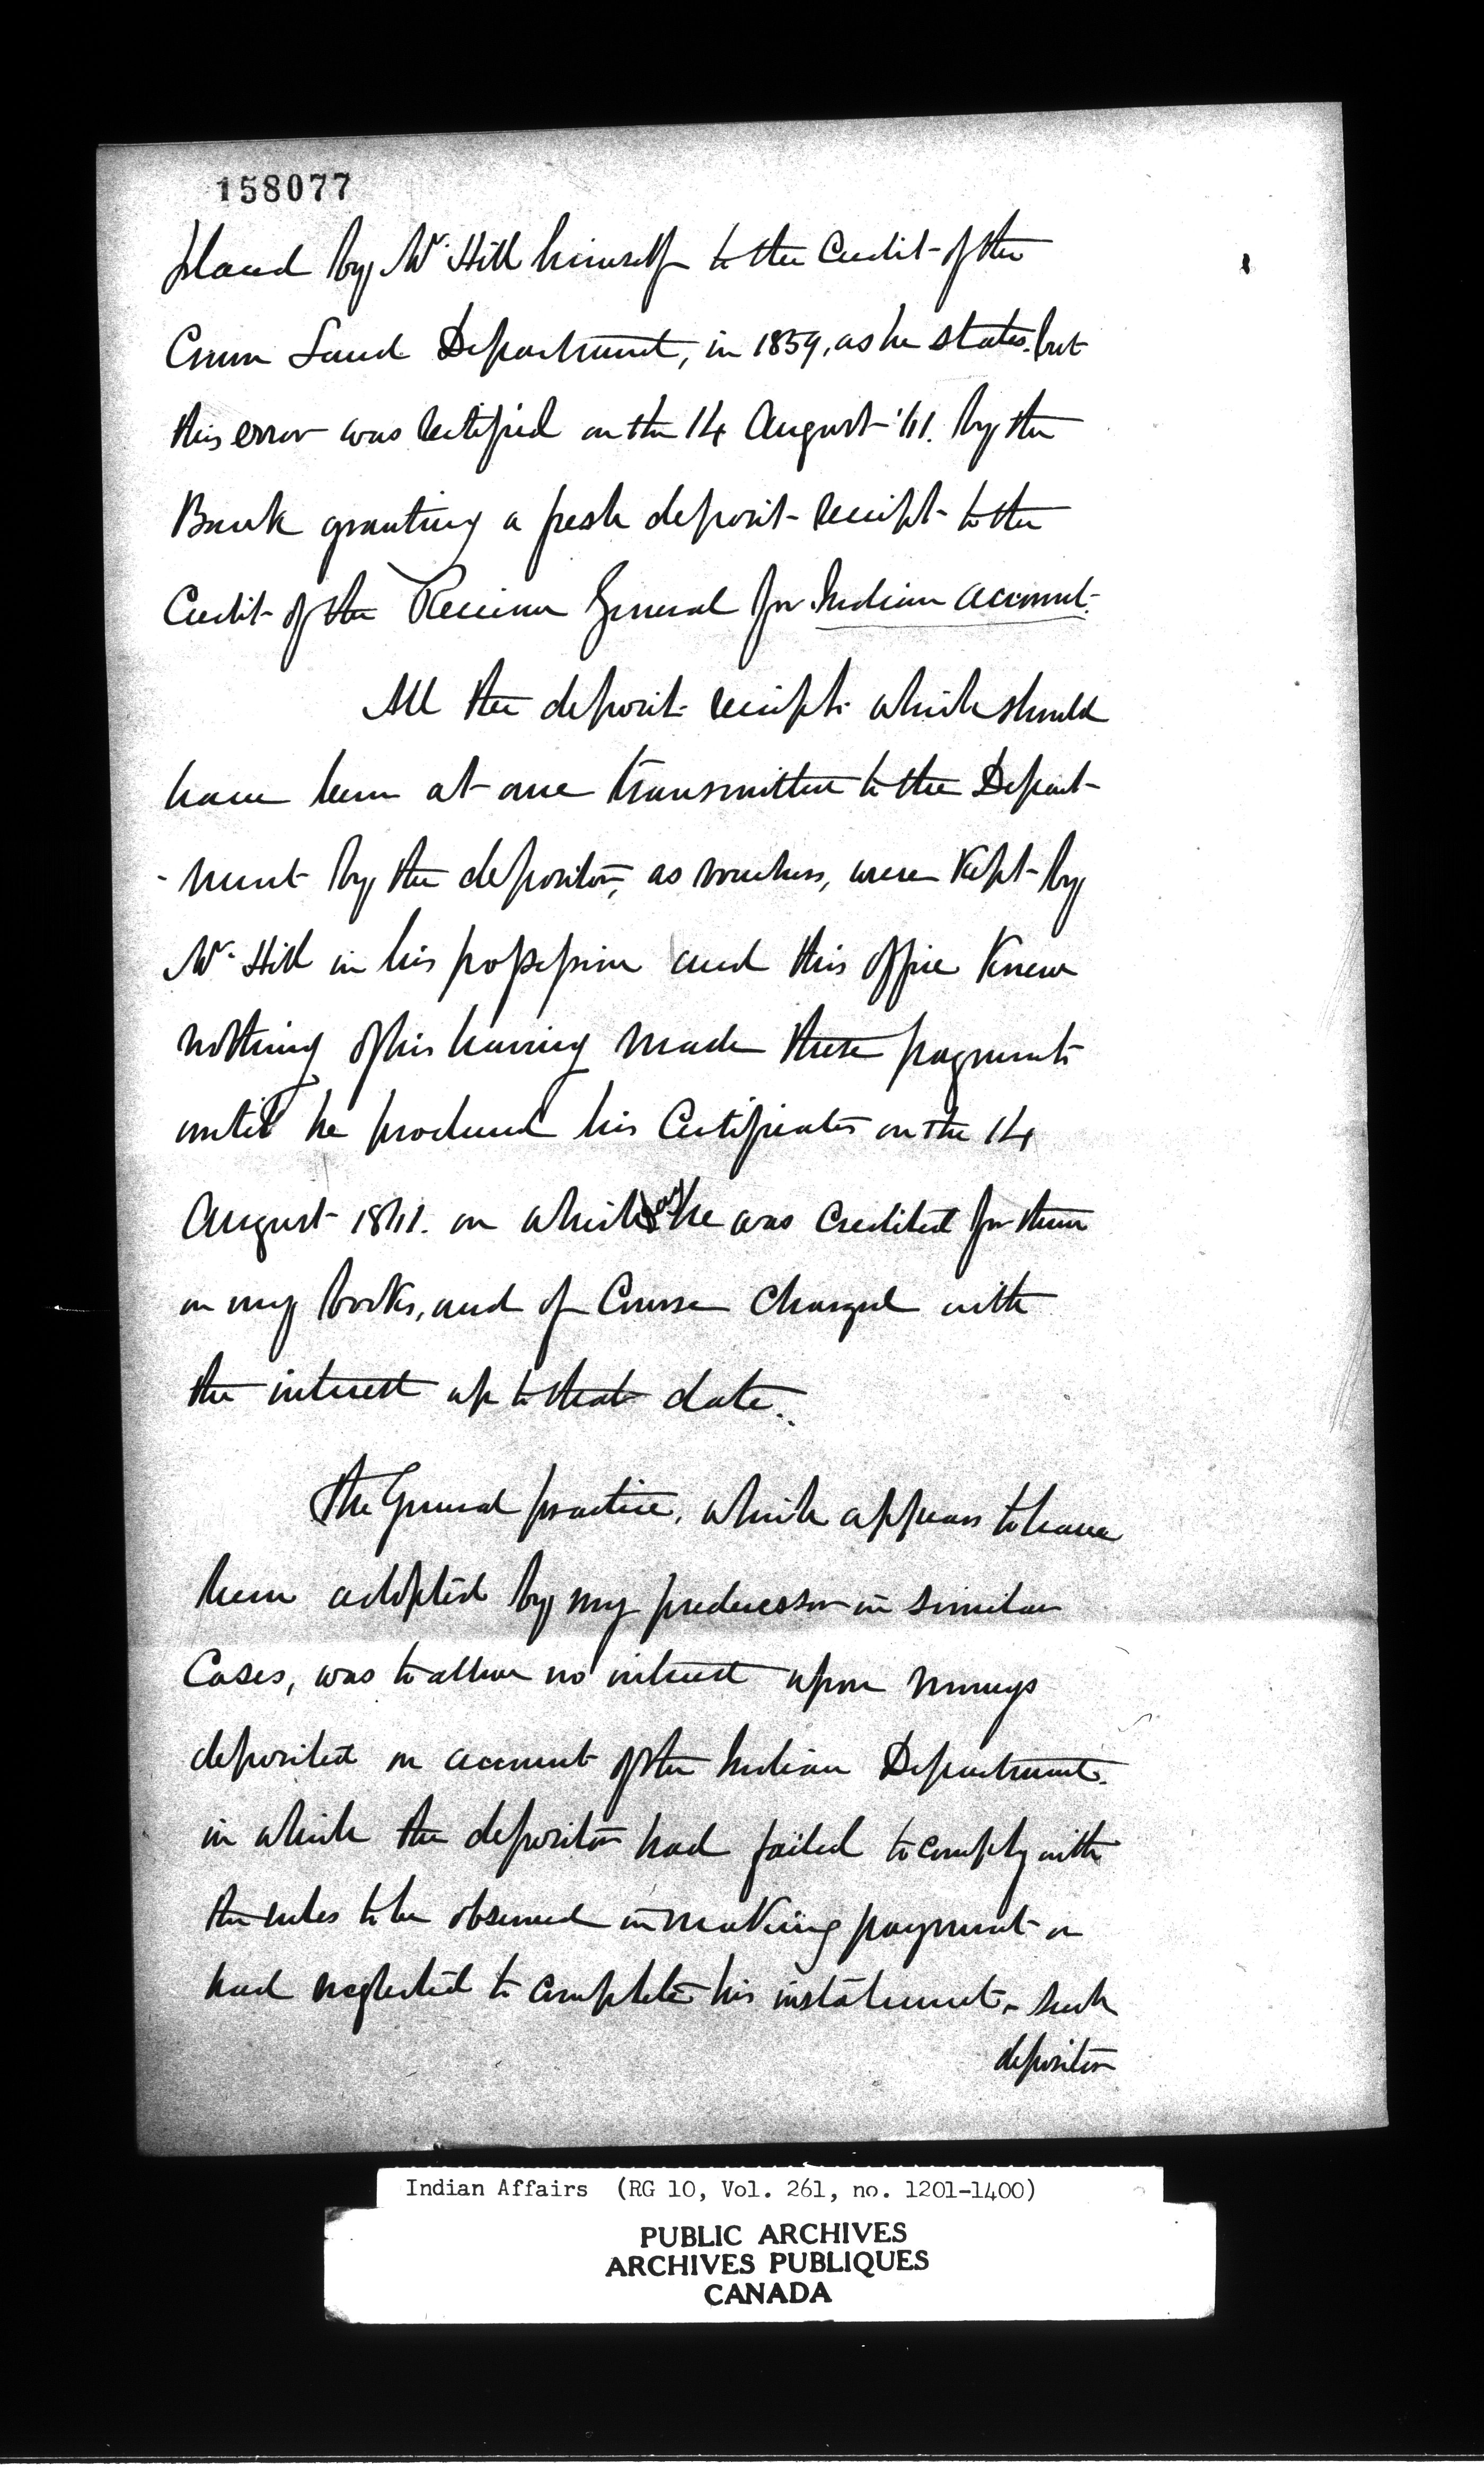 158077
placed by Mr. Hill himself to the Credit of the
Crown Land Department, in 1859, as he states. but
this error was rectified on the 14 August '61. by the
Bank granting a fresh deposit receipt to the
Credit of the Receiver General for Indian account.
All the deposit receipts which should
have been at once transmitted to the Depart-
-ment by the depositor, as vouchers, were kept by
Mr. Hill in his possession and this office knew
nothing of his having made these payments
until he produced his Certificates on the 14
August 1861. on which day he was Credited for them
in my books, and of Course Charged with
the interest up to that date.
The General practice, which appears to have
been adopted by my predecessor in similar
Cases, was to allow no interest upon moneys
deposited on account of the Indian Department.
in which the depositor had failed to comply with
the rules to be observed in making payment or
had neglected to complete his instalment, - such
depositor
Indian Affairs (RG 10, Vol. 261, no. 1201-1400)
PUBLIC ARCHIVES
ARCHIVES PUBLIQUES
CANADA